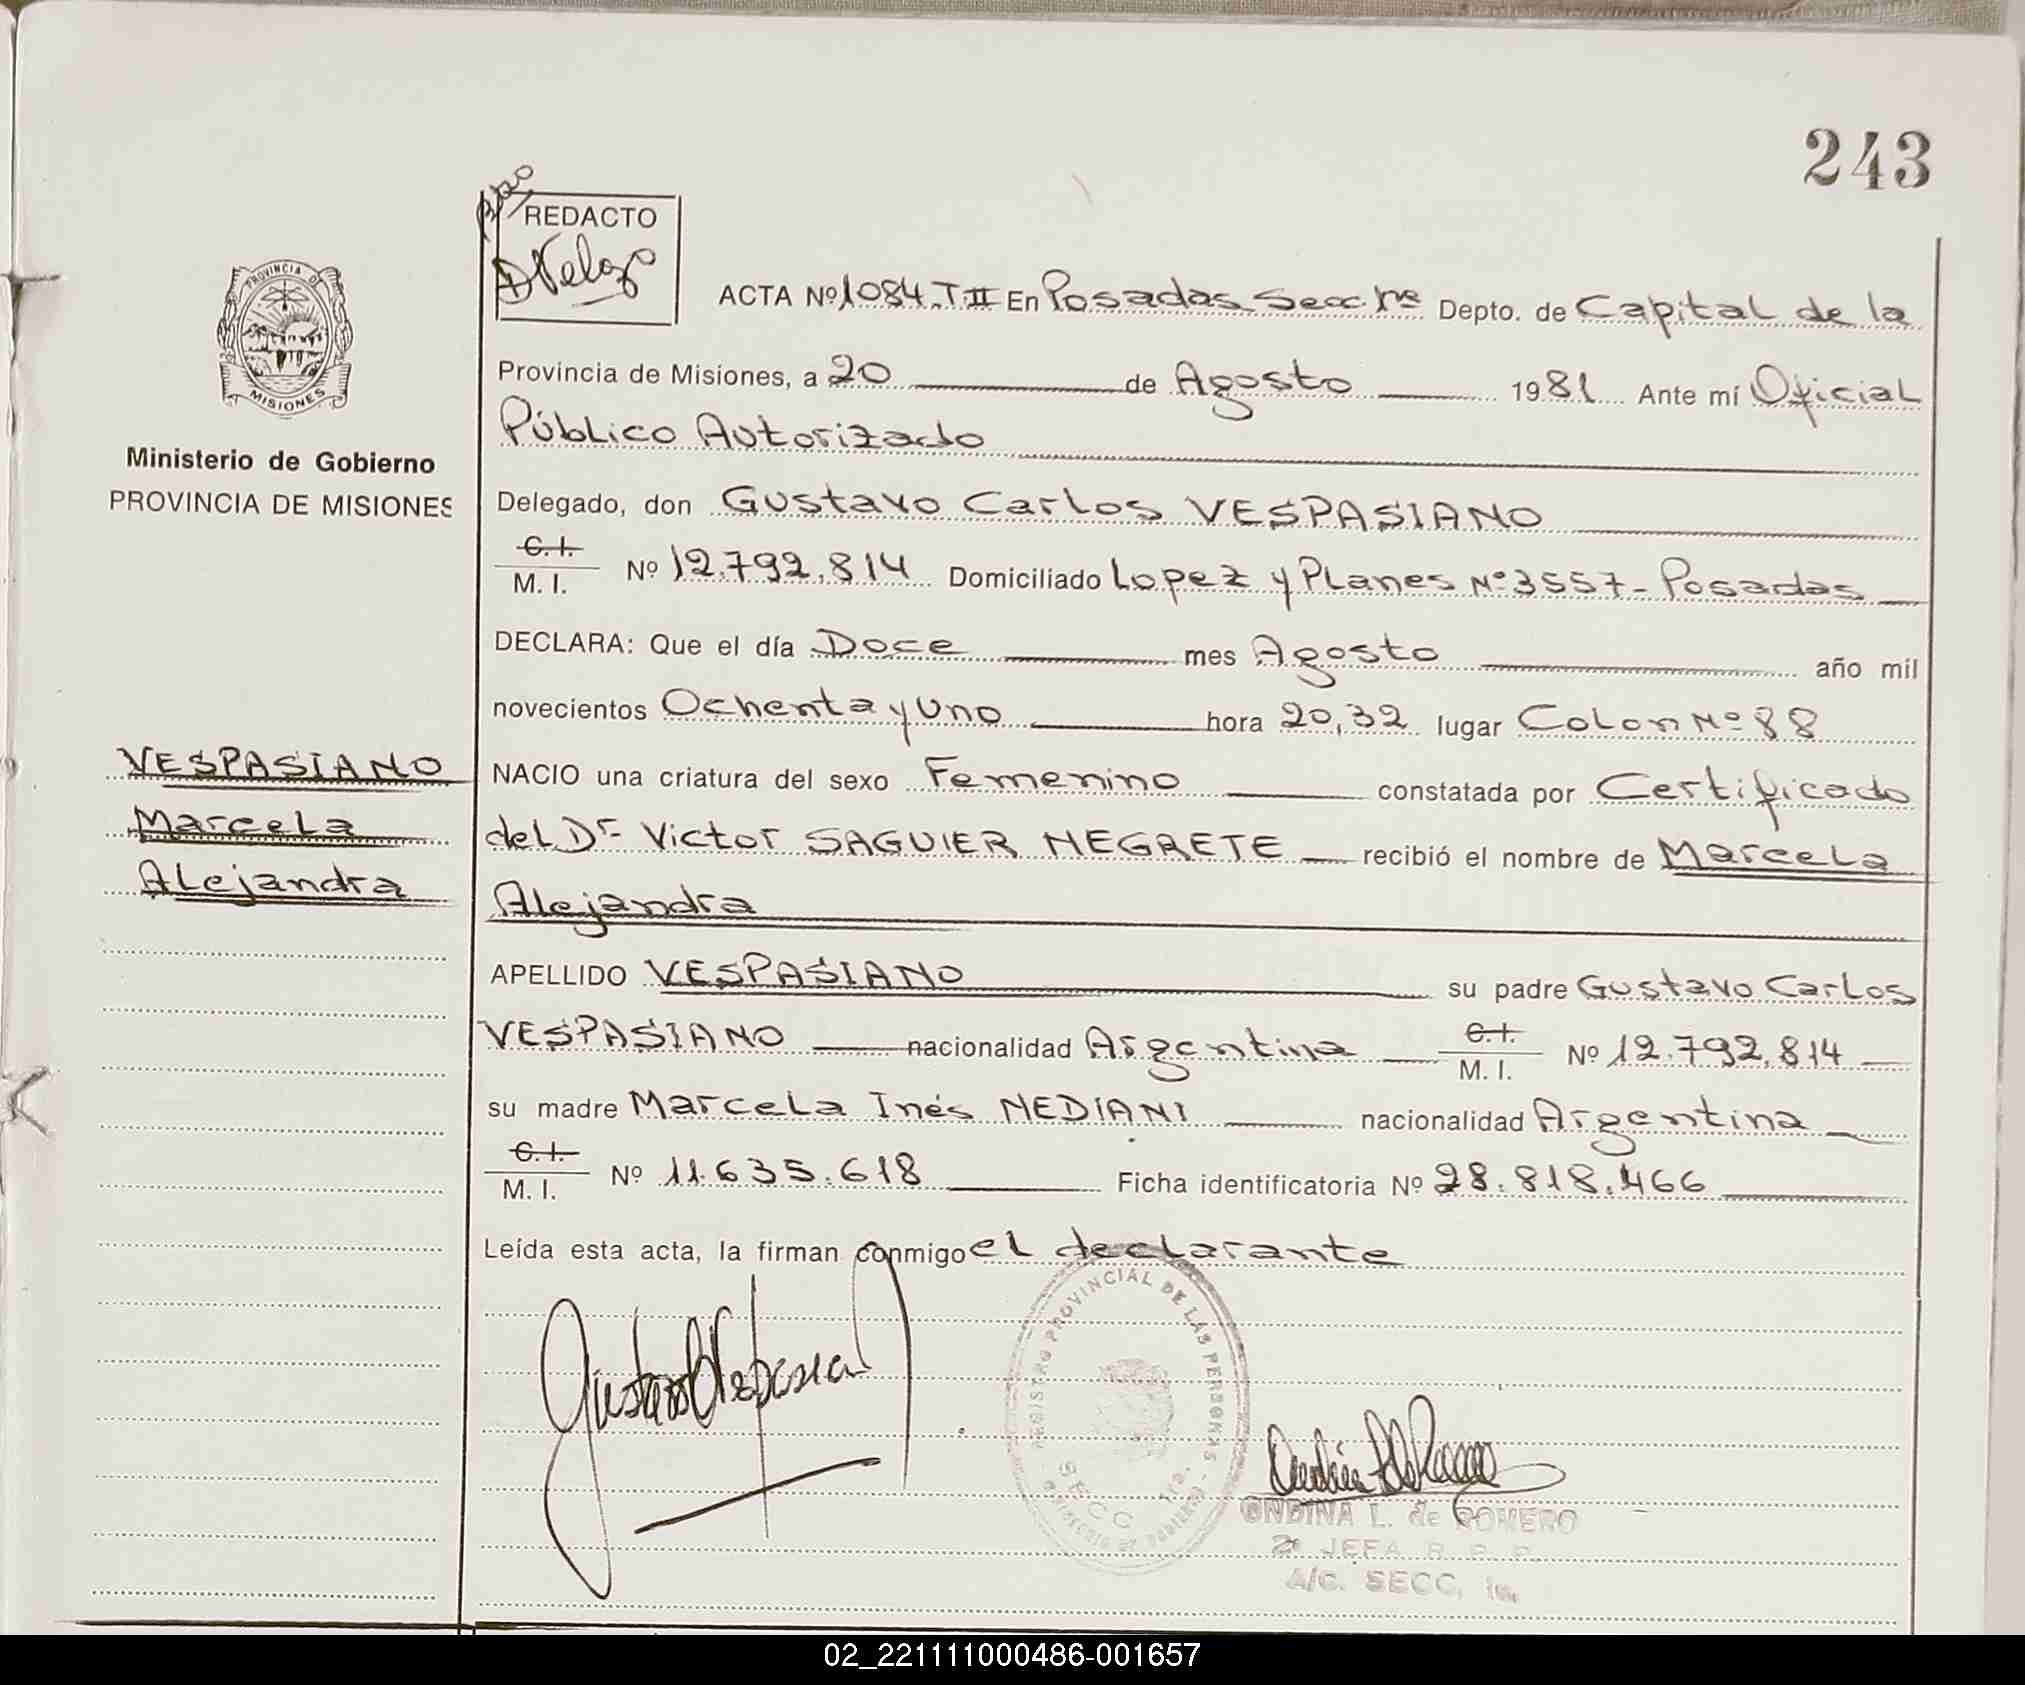 243
REDACTO
DVelozo
ACTA Nº 1084 T.II En Posadas Secc 1ra Depto. de Capital de la
Provincia de Misiones, a 20 de Agosto 1981 Ante mí Oficial
Público Autorizado
Delegado, don Gustavo Carlos VESPASIANO
C.I.
M. I. Nº 12.792.814 Domiciliado Lopez y Planes Nº 3557 - Posadas
DECLARA: Que el día Doce mes Agosto año mil
novecientos Ochenta y Uno hora 20,32 lugar Colon Nº 88
NACIO una criatura del sexo Femenino constatada por Certificado
del Dr. Victor SAGUIER NEGRETE recibió el nombre de Marcela
Alejandra
APELLIDO VESPASIANO su padre Gustavo Carlos
VESPASIANO nacionalidad Argentina C.I. M. I. Nº 12.792.814
su madre Marcela Inés MEDIANI nacionalidad Argentina
C.I.
M. I. Nº 11.635.618 Ficha identificatoria Nº 28.818.466
Leída esta acta, la firman conmigo el declarante
PROVINCIA DE
MISIONES
Ministerio de Gobierno
PROVINCIA DE MISIONES
VESPASIANO
Marcela
Alejandra
Gustavo Vespasiano
REGISTRO PROVINCIAL DE LAS PERSONAS
SECC 1ra.
ONDINA L. de ROMERO
2º JEFA R. P. P.
A/C. SECC, 1ra.
02_221111000486-001657